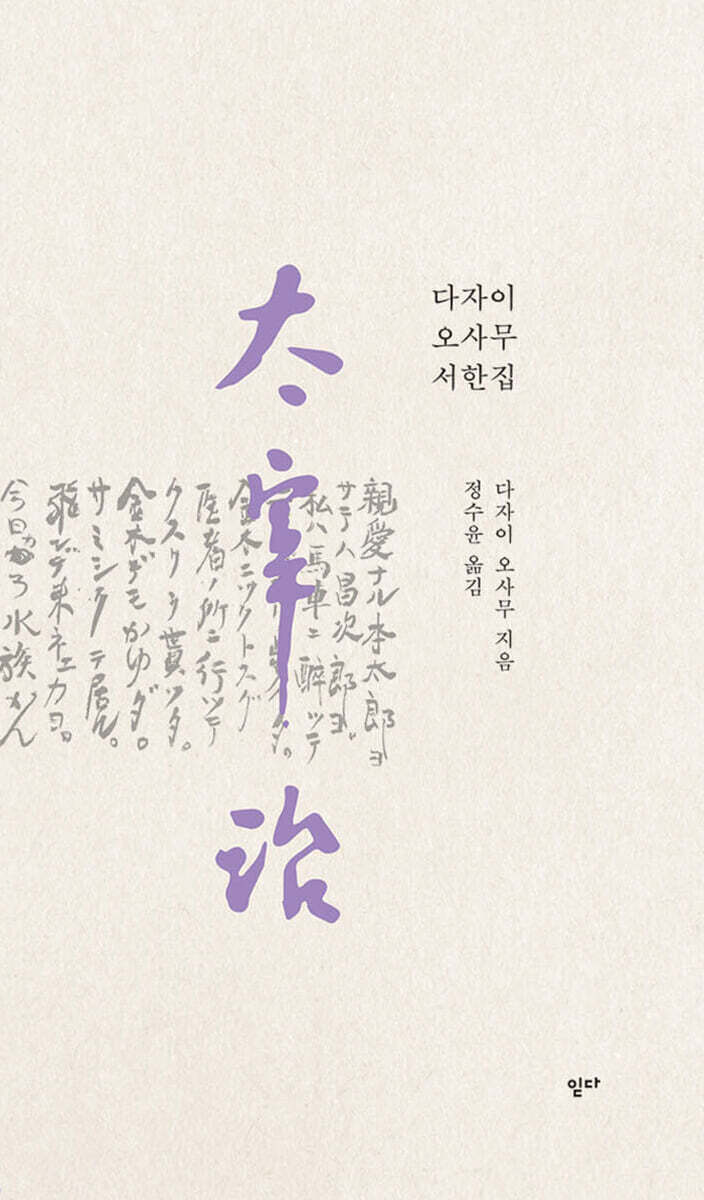 다자이
오사무
서한집
다자이 오사무 지음
정수윤 옮김
太宰治
親愛ナル本太郎ヨ
サテハ昌次郎ヨ。
私ハ馬車ニ酔ッテ
タ。
金木ニツクトスグ
医者ノ所ニ行ッテ
クスリヲ貰ッタ。
金木デモかゆダ。
サミシクテ居ル。
飛ンデ来ネエカヨ。
今日 水族かん
읻다